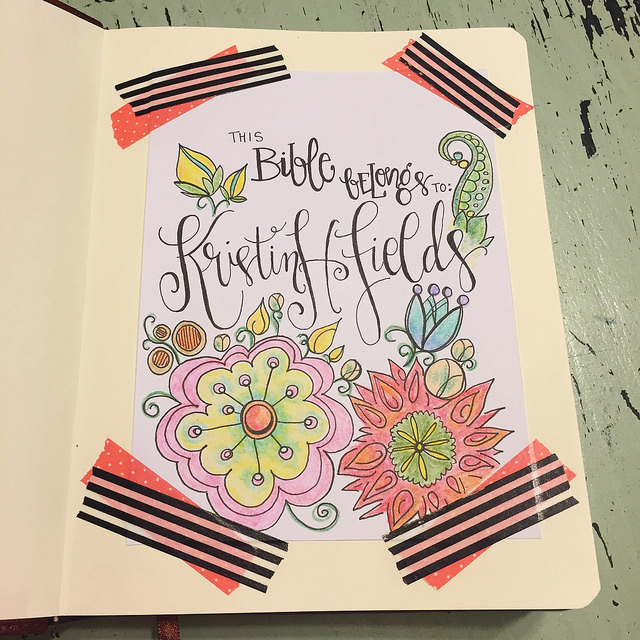 THIS
Bible BeLongs TO:
Kristin H Fields